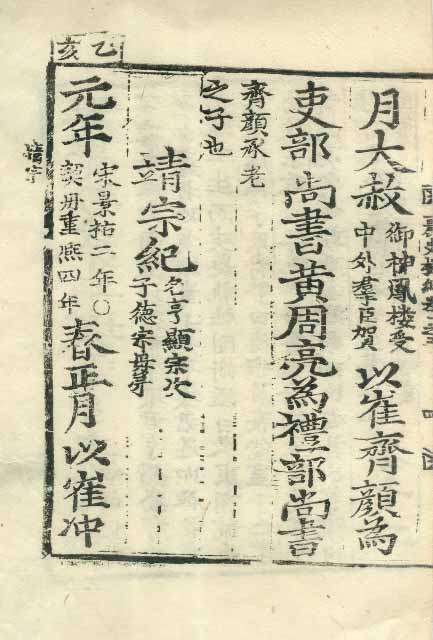 月大赦
御神鳳樓受
中外羣臣賀
以崔齊顏為
吏部尚書黃周亮為禮部尚書
齊顏承老
之子也
靖宗紀
名亨顯宗次
子德宗母弟
乙亥
元年
宋景祐二年○
契丹重熙四年
春正月以崔冲
靖宗